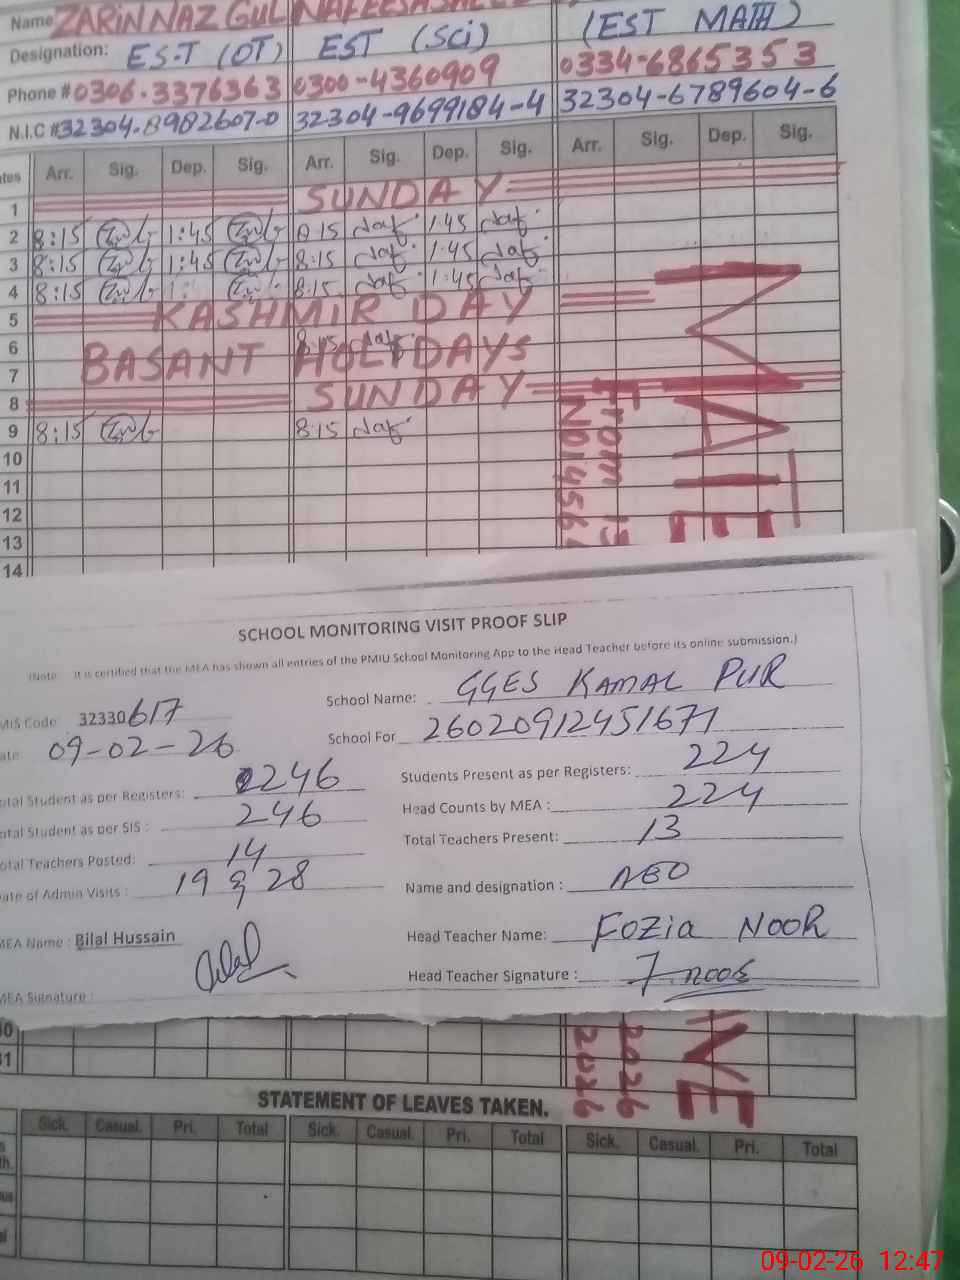 Name ZARIN NAZ GUL NAFEESA
Designation: EST (OT) EST (Sci) (EST MATH)
Phone # 0306-3376363 0300-4360909 0334-6865353
N.I.C # 32304-8982607-0 32304-9699184-4 32304-6789604-6
Arr. Sig. Dep. Sig. Arr. Sig. Dep. Sig. Arr. Sig. Dep. Sig.
1 SUNDAY
2 8:15 1:45 8:15 1:45
3 8:15 1:45 8:15 1:45
4 8:15 8:15 1:45
5 KASHMIR DAY
6 BASANT HOLIDAYS
7
8 SUNDAY
9 8:15 8:15
10
11
12
13
14
From
SCHOOL MONITORING VISIT PROOF SLIP
(Note: It is certified that the MEA has shown all entries of the PMIU School Monitoring App to the Head Teacher before its online submission.)
MIS Code: 32330617 School Name: GGES KAMAL PUR
ate 09-02-26 School For 26020912451671
otal Student as per Registers: 246 Students Present as per Registers: 224
otal Student as per SIS : 246 Head Counts by MEA : 224
otal Teachers Posted: 14 Total Teachers Present: 13
ate of Admin Visits : 19 & 28 Name and designation : AEO
MEA Name : Bilal Hussain Head Teacher Name: Fozia NOOR
MEA Signature : Head Teacher Signature : F noor
30
31
2026
2026
STATEMENT OF LEAVES TAKEN.
Sick. Casual. Pri. Total Sick. Casual. Pri. Total Sick. Casual. Pri. Total
09-02-26 12:47